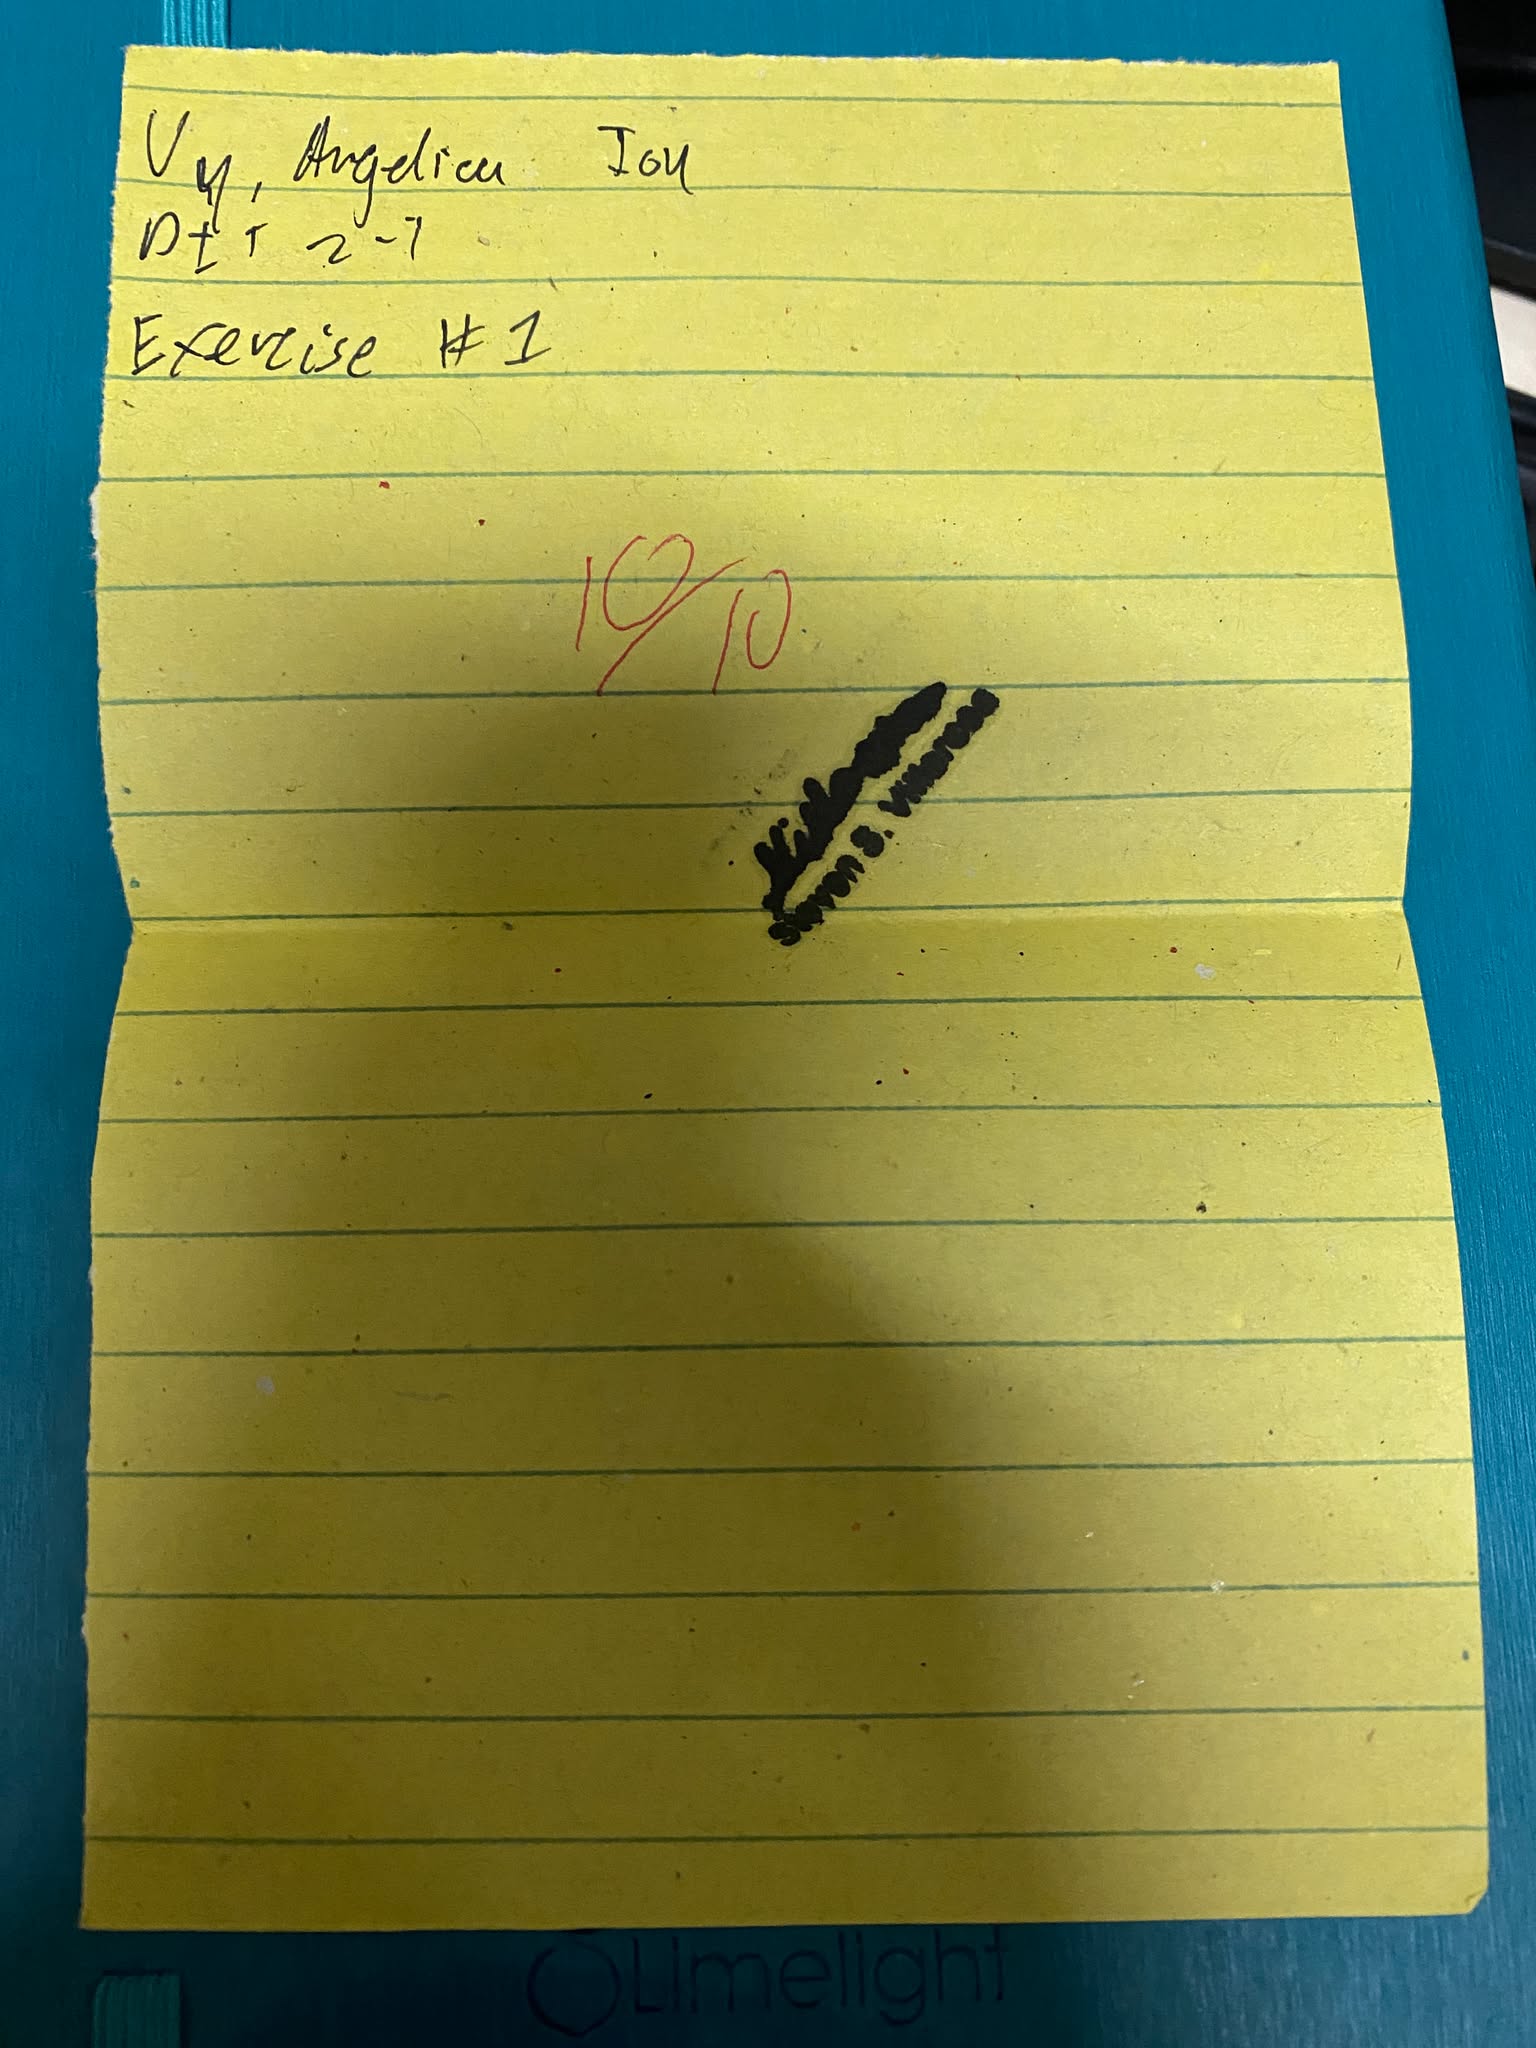 Uy, Angelica Joy
DIT 2-1
Exercise #1
10/10
Steven S. Villarosa
Limelight